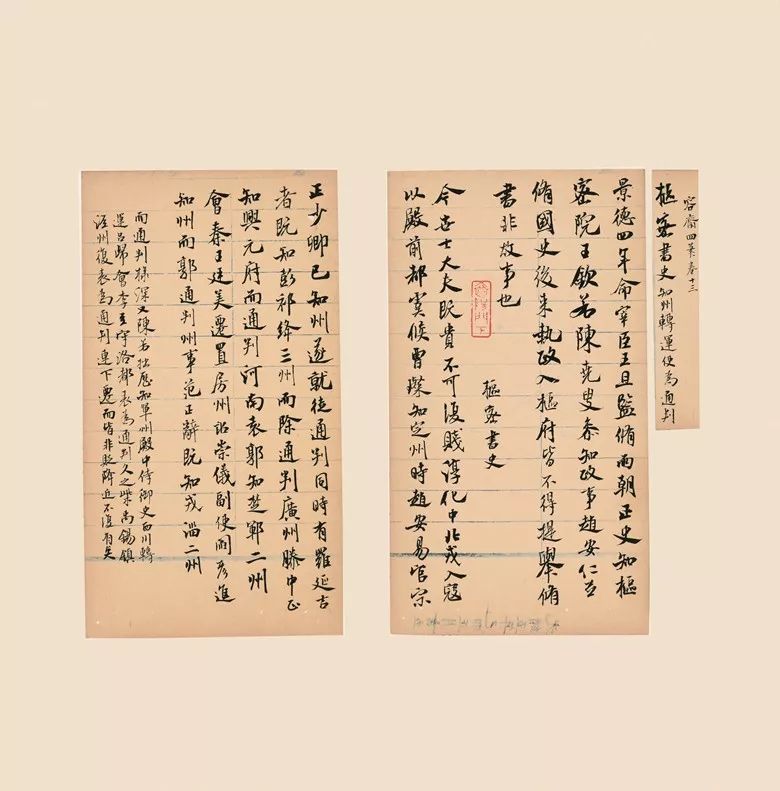 容齋四筆卷十三
樞密書史 知州轉運使為通判
景德四年命宰臣王旦監脩兩朝正史知樞
密院王欽若陳堯叟參知政事趙安仁並
脩國史後来執政入樞府皆不得提舉脩
書非故事也
樞密書史
今世士大夫既貴不可復賤淳化中北戎入寇
以殿前都虞候曹璨知定州時趙安易官宗
正少卿已知州遂就徙通判同時有羅延吉
者既知彭祁絳三州而除通判廣州滕中正
知興元府而通判河南袁郭知楚鄆二州
會秦王廷美遷置房州詔崇儀副使閻彥進
知州而郭通判州事范正辭既知戎淄二州
而通判棣深又陳若拙歷知單州殿中侍御史西川轉
運召歸會李至守洛都表為通判久之柴禹錫鎮
涇州復表為通判連下遷而皆非貶降近不復有矣